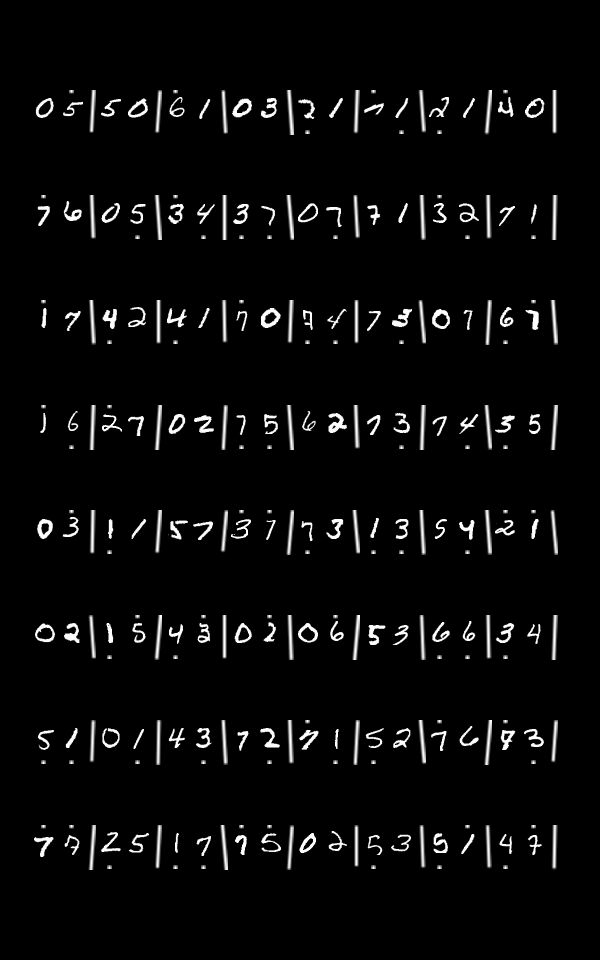 0 5 | 5 0 | 6 1 | 0 3 | 2 1 | 7 1 | 2 1 | 4 0 |
7 6 | 0 5 | 3 4 | 3 7 | 0 7 | 7 1 | 3 2 | 7 1 |
1 7 | 4 2 | 4 1 | 7 0 | 7 4 | 7 3 | 0 7 | 6 7 |
1 6 | 2 7 | 0 2 | 7 5 | 6 2 | 7 3 | 7 4 | 3 5 |
0 3 | 1 1 | 5 7 | 3 7 | 7 3 | 1 3 | 5 4 | 2 1 |
0 2 | 1 5 | 4 3 | 0 2 | 0 6 | 5 3 | 6 6 | 3 4 |
5 1 | 0 1 | 4 3 | 7 2 | 7 1 | 5 2 | 7 6 | 7 3 |
7 7 | 2 5 | 1 7 | 7 5 | 0 2 | 5 3 | 5 1 | 4 7 |